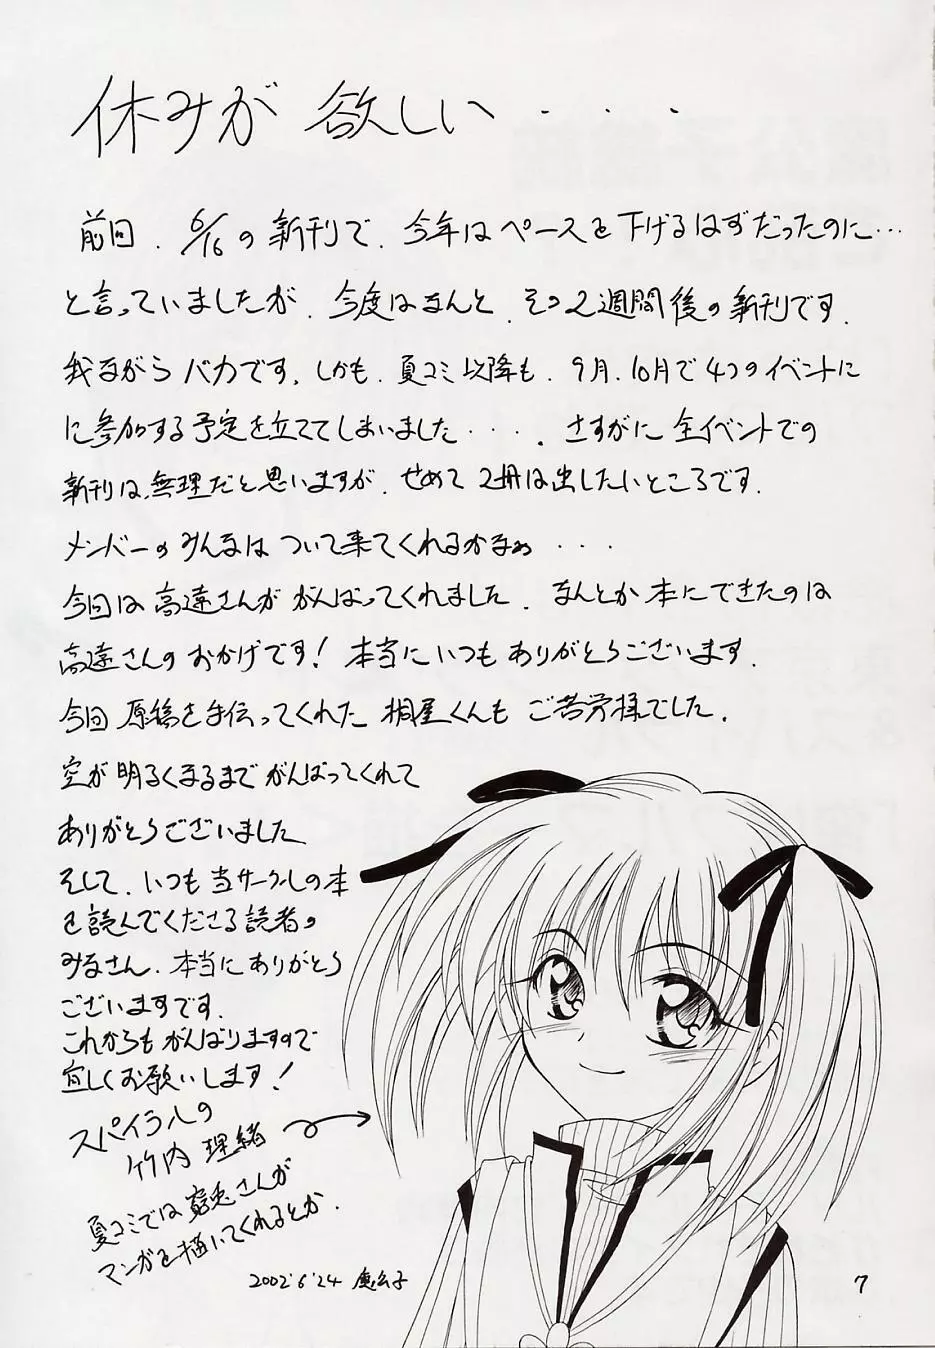 休みが 欲しい・・・
前回、6/16の新刊で、今年はペースを下げるはずだったのに…
と言っていましたが、今度はなんと、その2週間後の新刊です。
我ながらバカです。しかも、夏コミ以降も、9月、10月で4つのイベントに
に参加する予定を立ててしまいました・・・。さすがに全イベントでの
新刊は、無理だと思いますが、せめて2冊は出したいところです。
メンバーのみんなは ついて来てくれるかなぁ・・・
今回は高遠さんが がんばってくれました。なんとか本にできたのは
高遠さんのおかげです! 本当にいつもありがとうございます。
今回 原稿を手伝ってくれた 桐屋くんも ご苦労様でした。
空が明るくなるまで がんばってくれて
ありがとうございました
そして、いつも当サークルの本
を読んでくださる読者の
みなさん、本当にありがとう
ございますです。
これからもがんばりますので
宜しくお願いします!
スパイラルの
竹内 理緒
夏コミでは 兎さんが
マンガを描いてくれるとか。
2002'6'24 公子
7